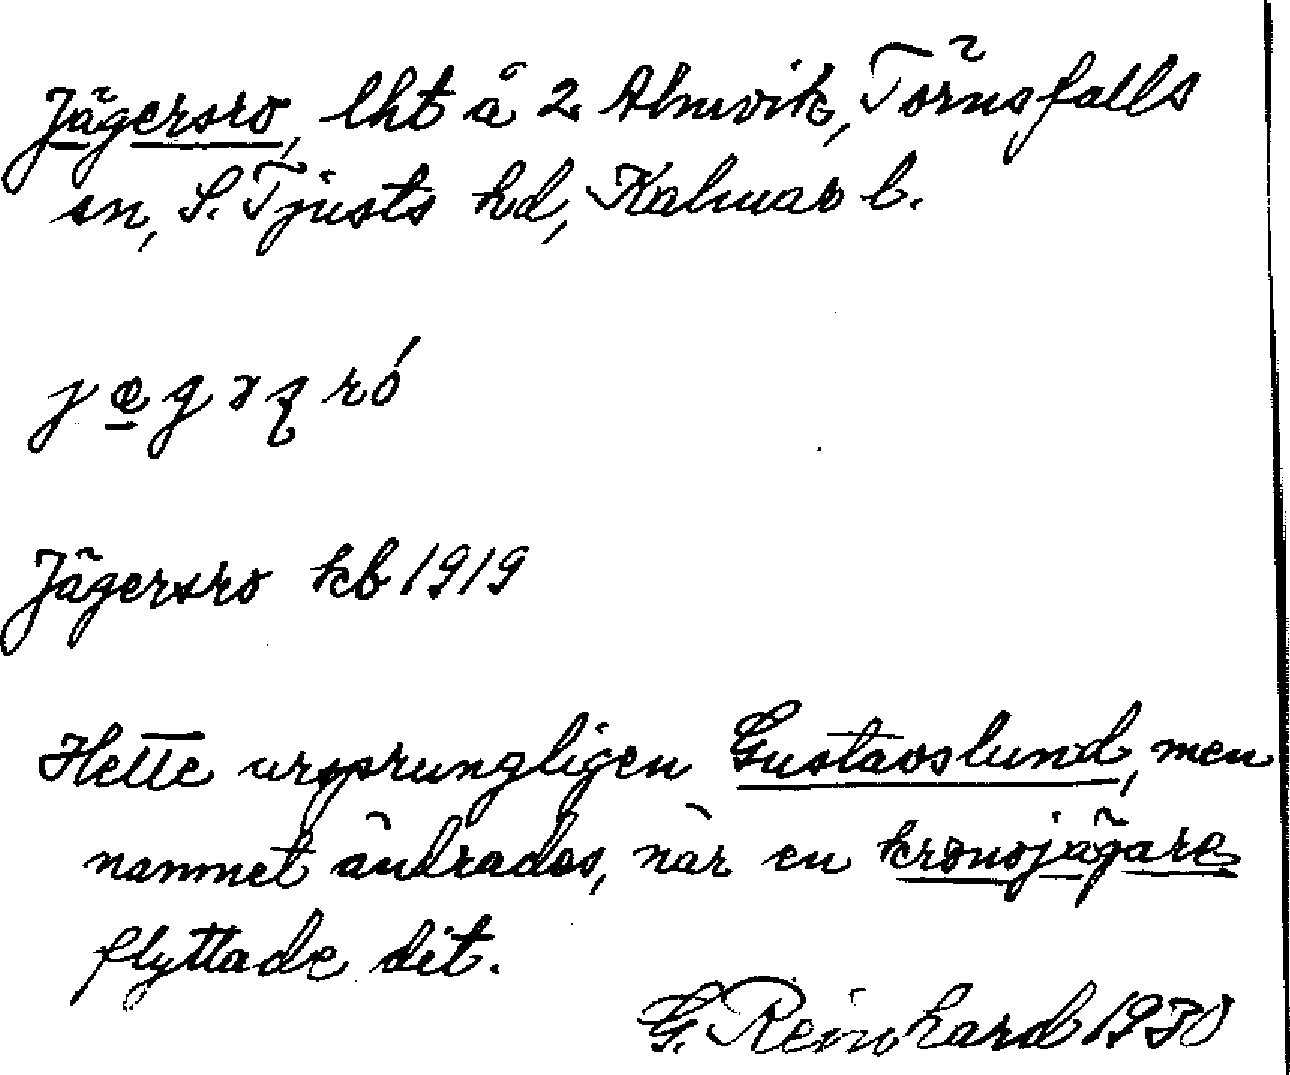 Jägersro, lht å 2 Almvik, Törnsfalls
sn, S. Tjusts hd, Kalmar l.
Jägersro kb 1919
Hette ursprungligen Gustavslund, men
namnet ändrades, när en kronojägare
flyttade dit.
G. Reinhard 1930